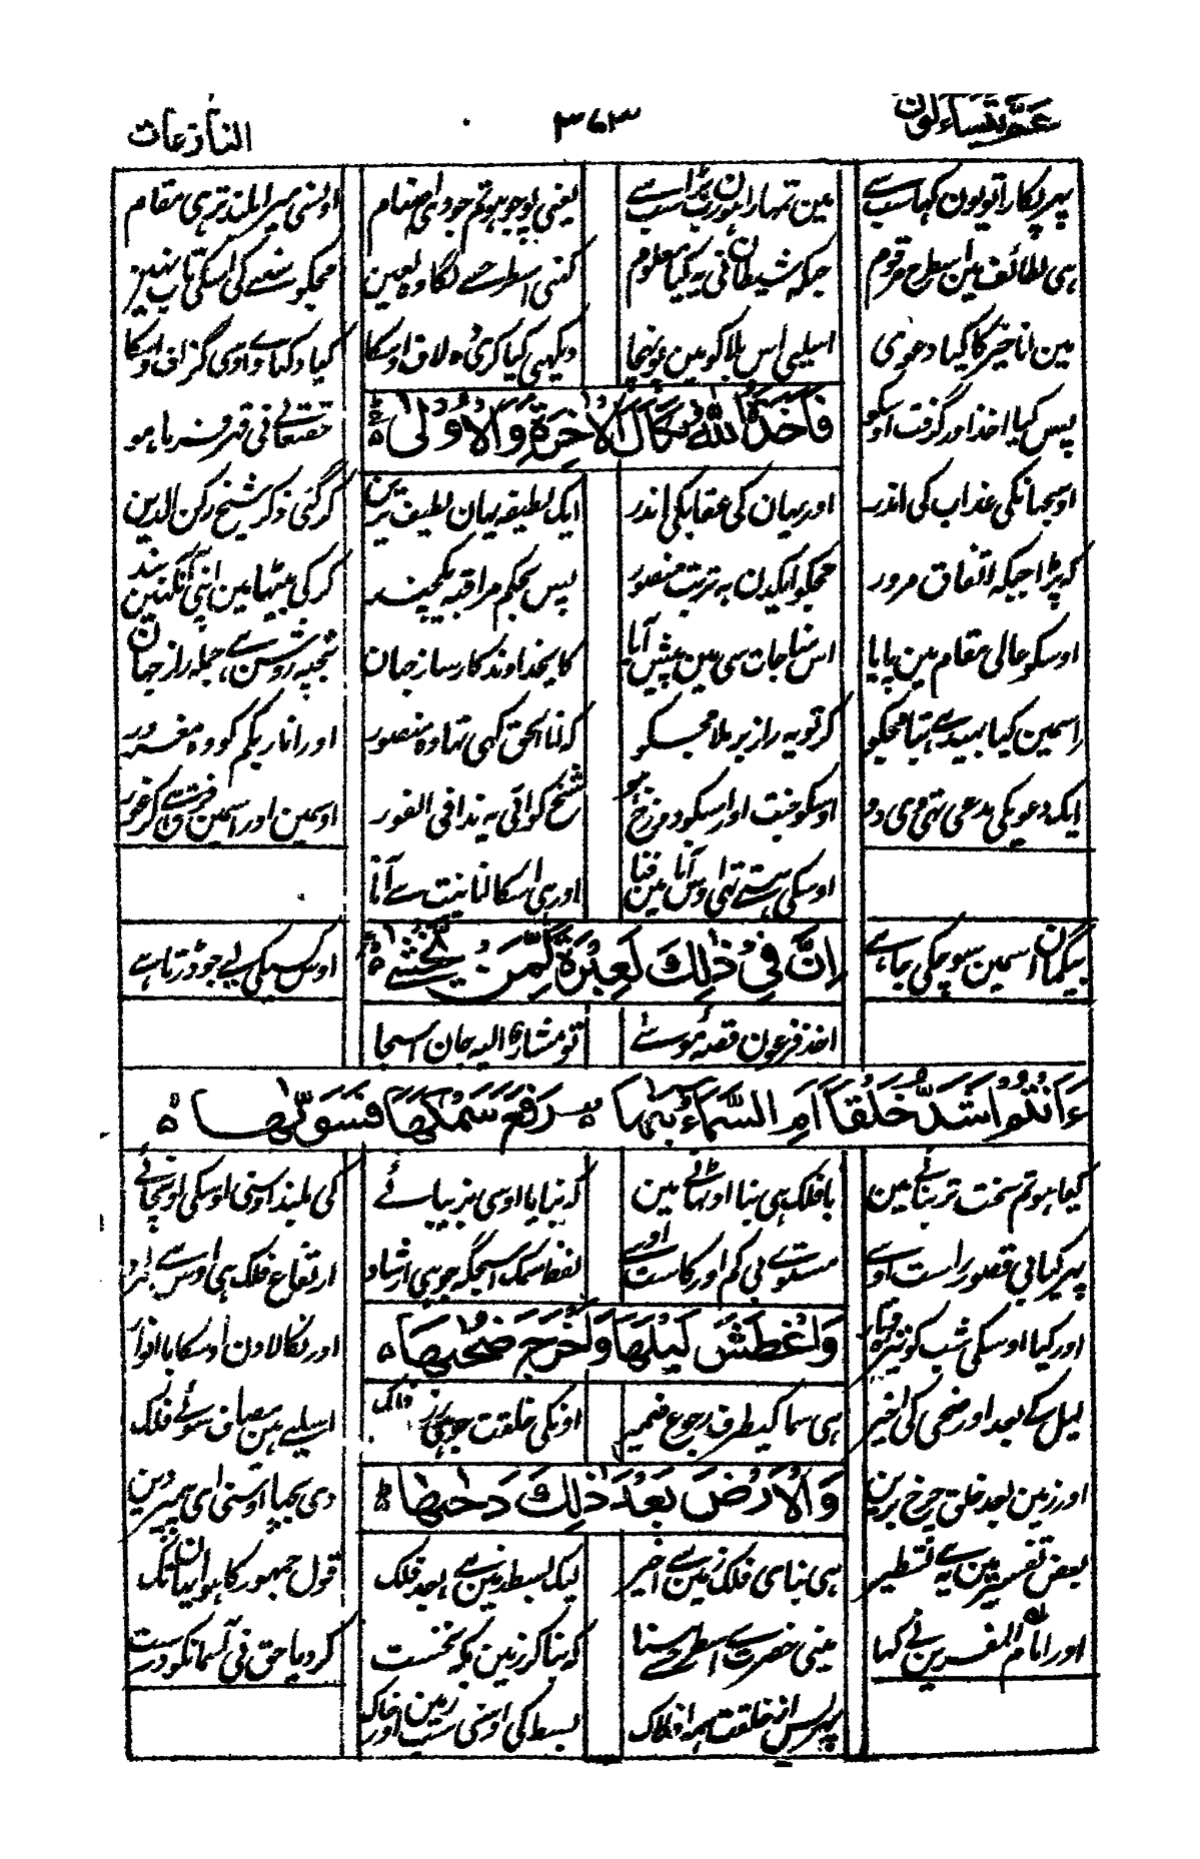 عم يتساءلون ۳۶۳ النازعات
پہر پکارا تو یون کہا سب سے مین تمہارا ہون رب بڑا سب سے یعنی پوجو ہو تم جو دی اصنام اونسی میرا بلند تر ہی مقام
ہی لطائف مین اسطرح مرقوم جبکہ شیطان نی یہ کیا معلوم کہنی اسطرحسے لگا وہ لعین مجکو سننے کی اسکی تاب نہین
مین انا خیر کا کیا دعوی اسلیی اس بلا کو مین پہنچا دیکہیی کیا کری وہ لاف اوسکا کیا دکہاوے اوی گزاف اوسکا
فَاَخَذَهُ اللّٰهُ نَكَالَ الْاٰخِرَةِ وَالْاُوْلٰى ؕ
پس کیا اخذ اور گرفت اوسکو حقتعالے نی قہر فرما ہو
اوسجہانکی عذاب کی اندر اور یہان کی عقابکی اندر ایک لطیفہ یہان لطیف ترین کر گئی ذکر شیخ رکن الدین
کہ پڑا جبکہ اتفاق مرور مجکو ایکدن بہ تربت منصور پس بحکم مراقبہ یکچند کر کی بیٹہا مین اپنی آنکہین بند
اوسکو عالی مقام مین پایا اس مناجات سی مین پیش آیا کای خداوند کارساز جہان تجہپہ روشن ہے جملہ راز جہان
اسمین کیا بہید ہے بتا مجکو کر تو یہ راز برملا مجسکو کہ انا الحق کہی تہا وہ منصور اور انا ربکم کو وہ مغرور
ایک دعویکی مدعی تہی وی دو اوسکو جنت اور اسکو دوزخ ہو شیخ کو آئی یہ ندا فی الفور اوسمین اور اسمین فرق ہے کر غور
اوسکی ہستے تہی اوس آنا مین فنا اور ہی اسکا انانیت سے آنا
اِنَّ فِيْ ذٰلِكَ لَعِبْرَةً لِّمَنْ يَّخْشٰى ؕ
بیگمان اسمین سوچکی جا ہے اوس کسیکی لیے جو ڈرتا ہے
اخذ فرعون قصہ موسے تو مشار الیہ جان اسجا
ءَاَنْتُمْ اَشَدُّ خَلْقًا اَمِ السَّمَآءُ بَنٰهَا ۥ رَفَعَ سَمْكَهَا فَسَوّٰىهَا ۙ
کیا ہو تم سخت تر بنانے مین یا فلک ہی بنا اوٹہانے مین کہ بنایا اوسی بزیبائے کی بلند اوسنی اوسکی اونچائے
پہر کیا بی قصور راست اوسے مستوے بی کم اور کاست اوسے لفظ سمک اسجگہ جو ہی ارشاد ارتفاع فلک ہی اوس سے مراد
وَاَغْطَشَ لَيْلَهَا وَاَخْرَجَ ضُحٰىهَا ۙ
اور کیا اوسکی شب کو تیرہ وتار اور نکالا دن اوسکا با انوار
لیل کے بعد اور ضحی کی اخیر ہی سما کیطرف رجوع ضمیر اونکی خلقت جو ہی فلک اسلیے ہین مضاف سوئے فلک
وَالْاَرْضَ بَعْدَ ذٰلِكَ دَحٰىهَا ؕ
اور زمین بعد خلق چرخ برین دی بچہا اوسنی ای پیمبر دین
بعض تفسیر مین ہے یہ تسطیر ہی بنای فلک زمین سے اخیر لیک بسط زمین ہے بعد فلک قول جمہور کا ہوا یہان تک
اور امام المفسرین نے کہا مینی حضرت سے اسطرحسے سنا کہ بنا کر زمین یکہ نخست کر دیا حق نی آسمانکو درست
پہر پس از خلقت ہمہ افلاک بسط کی اوسنی سب زمین اور خاک